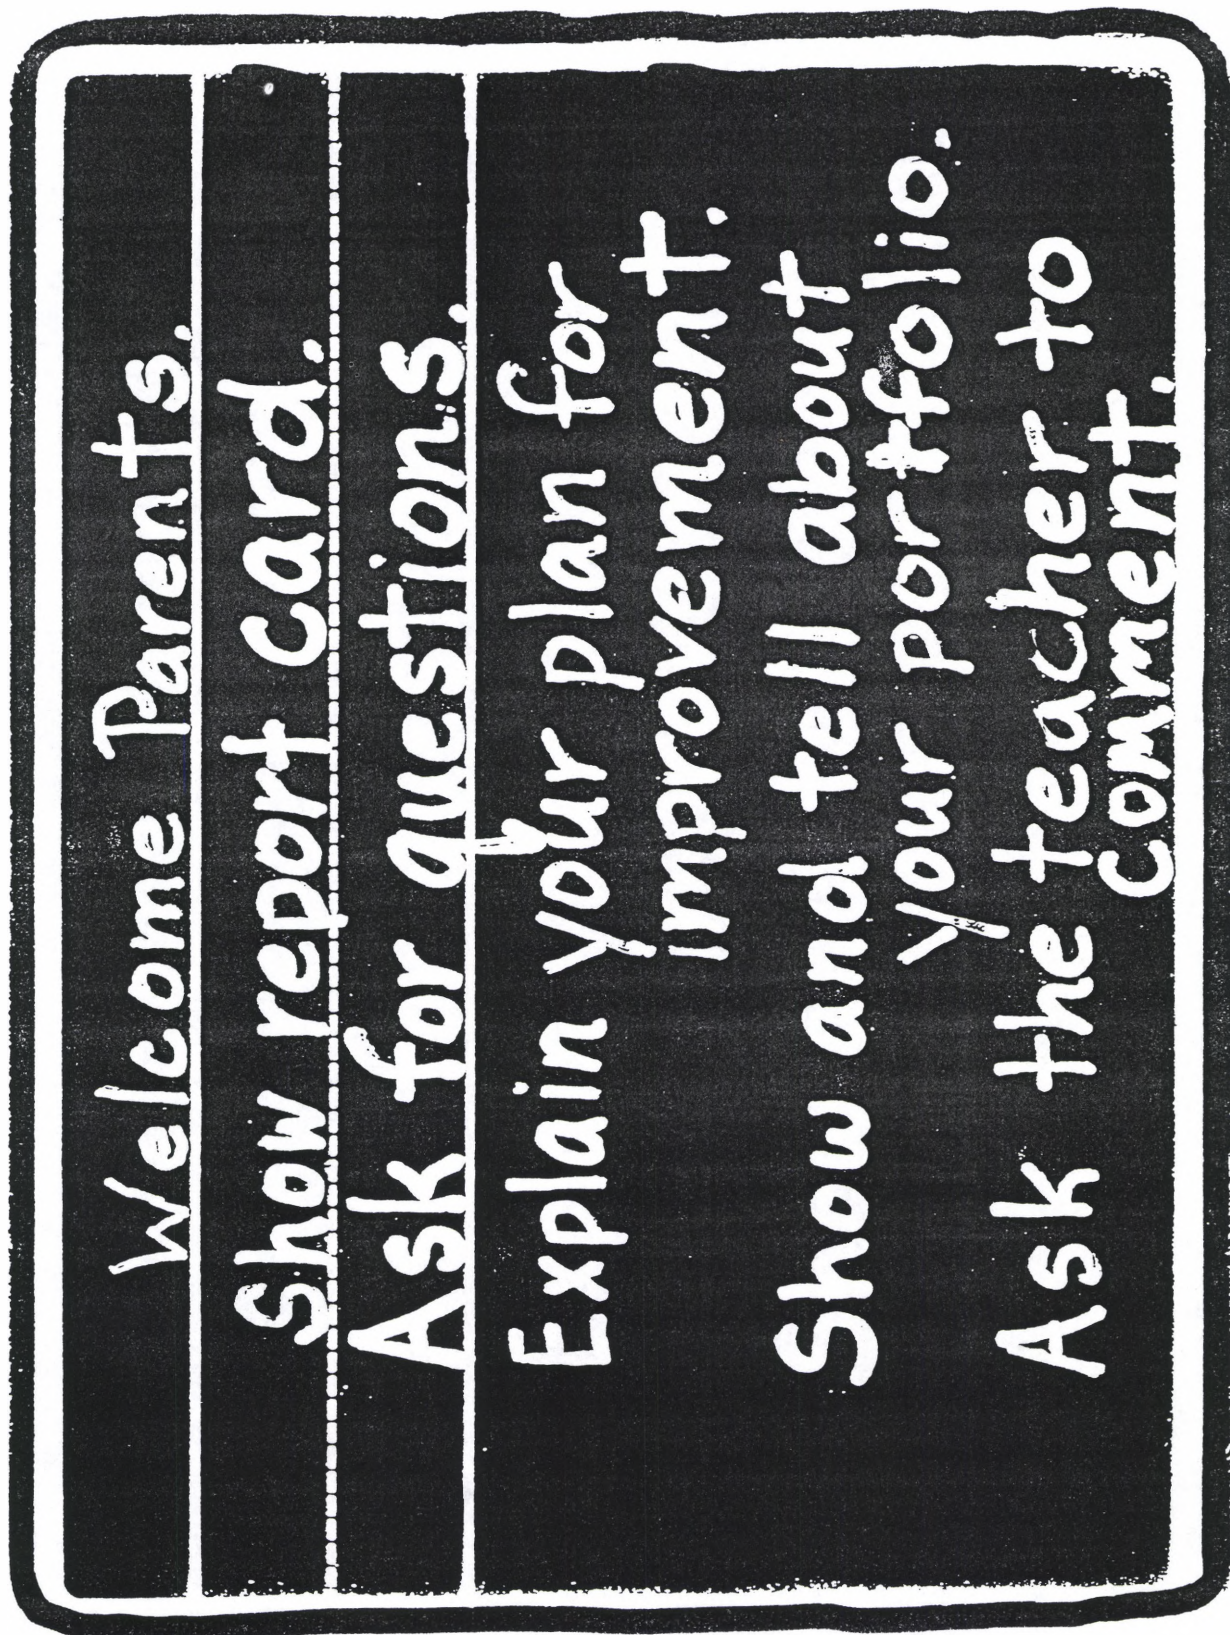 Welcome Parents.
Show report card.
Ask for questions.
Explain your plan for
improvement.
Show and tell about
your portfolio.
Ask the teacher to
comment.